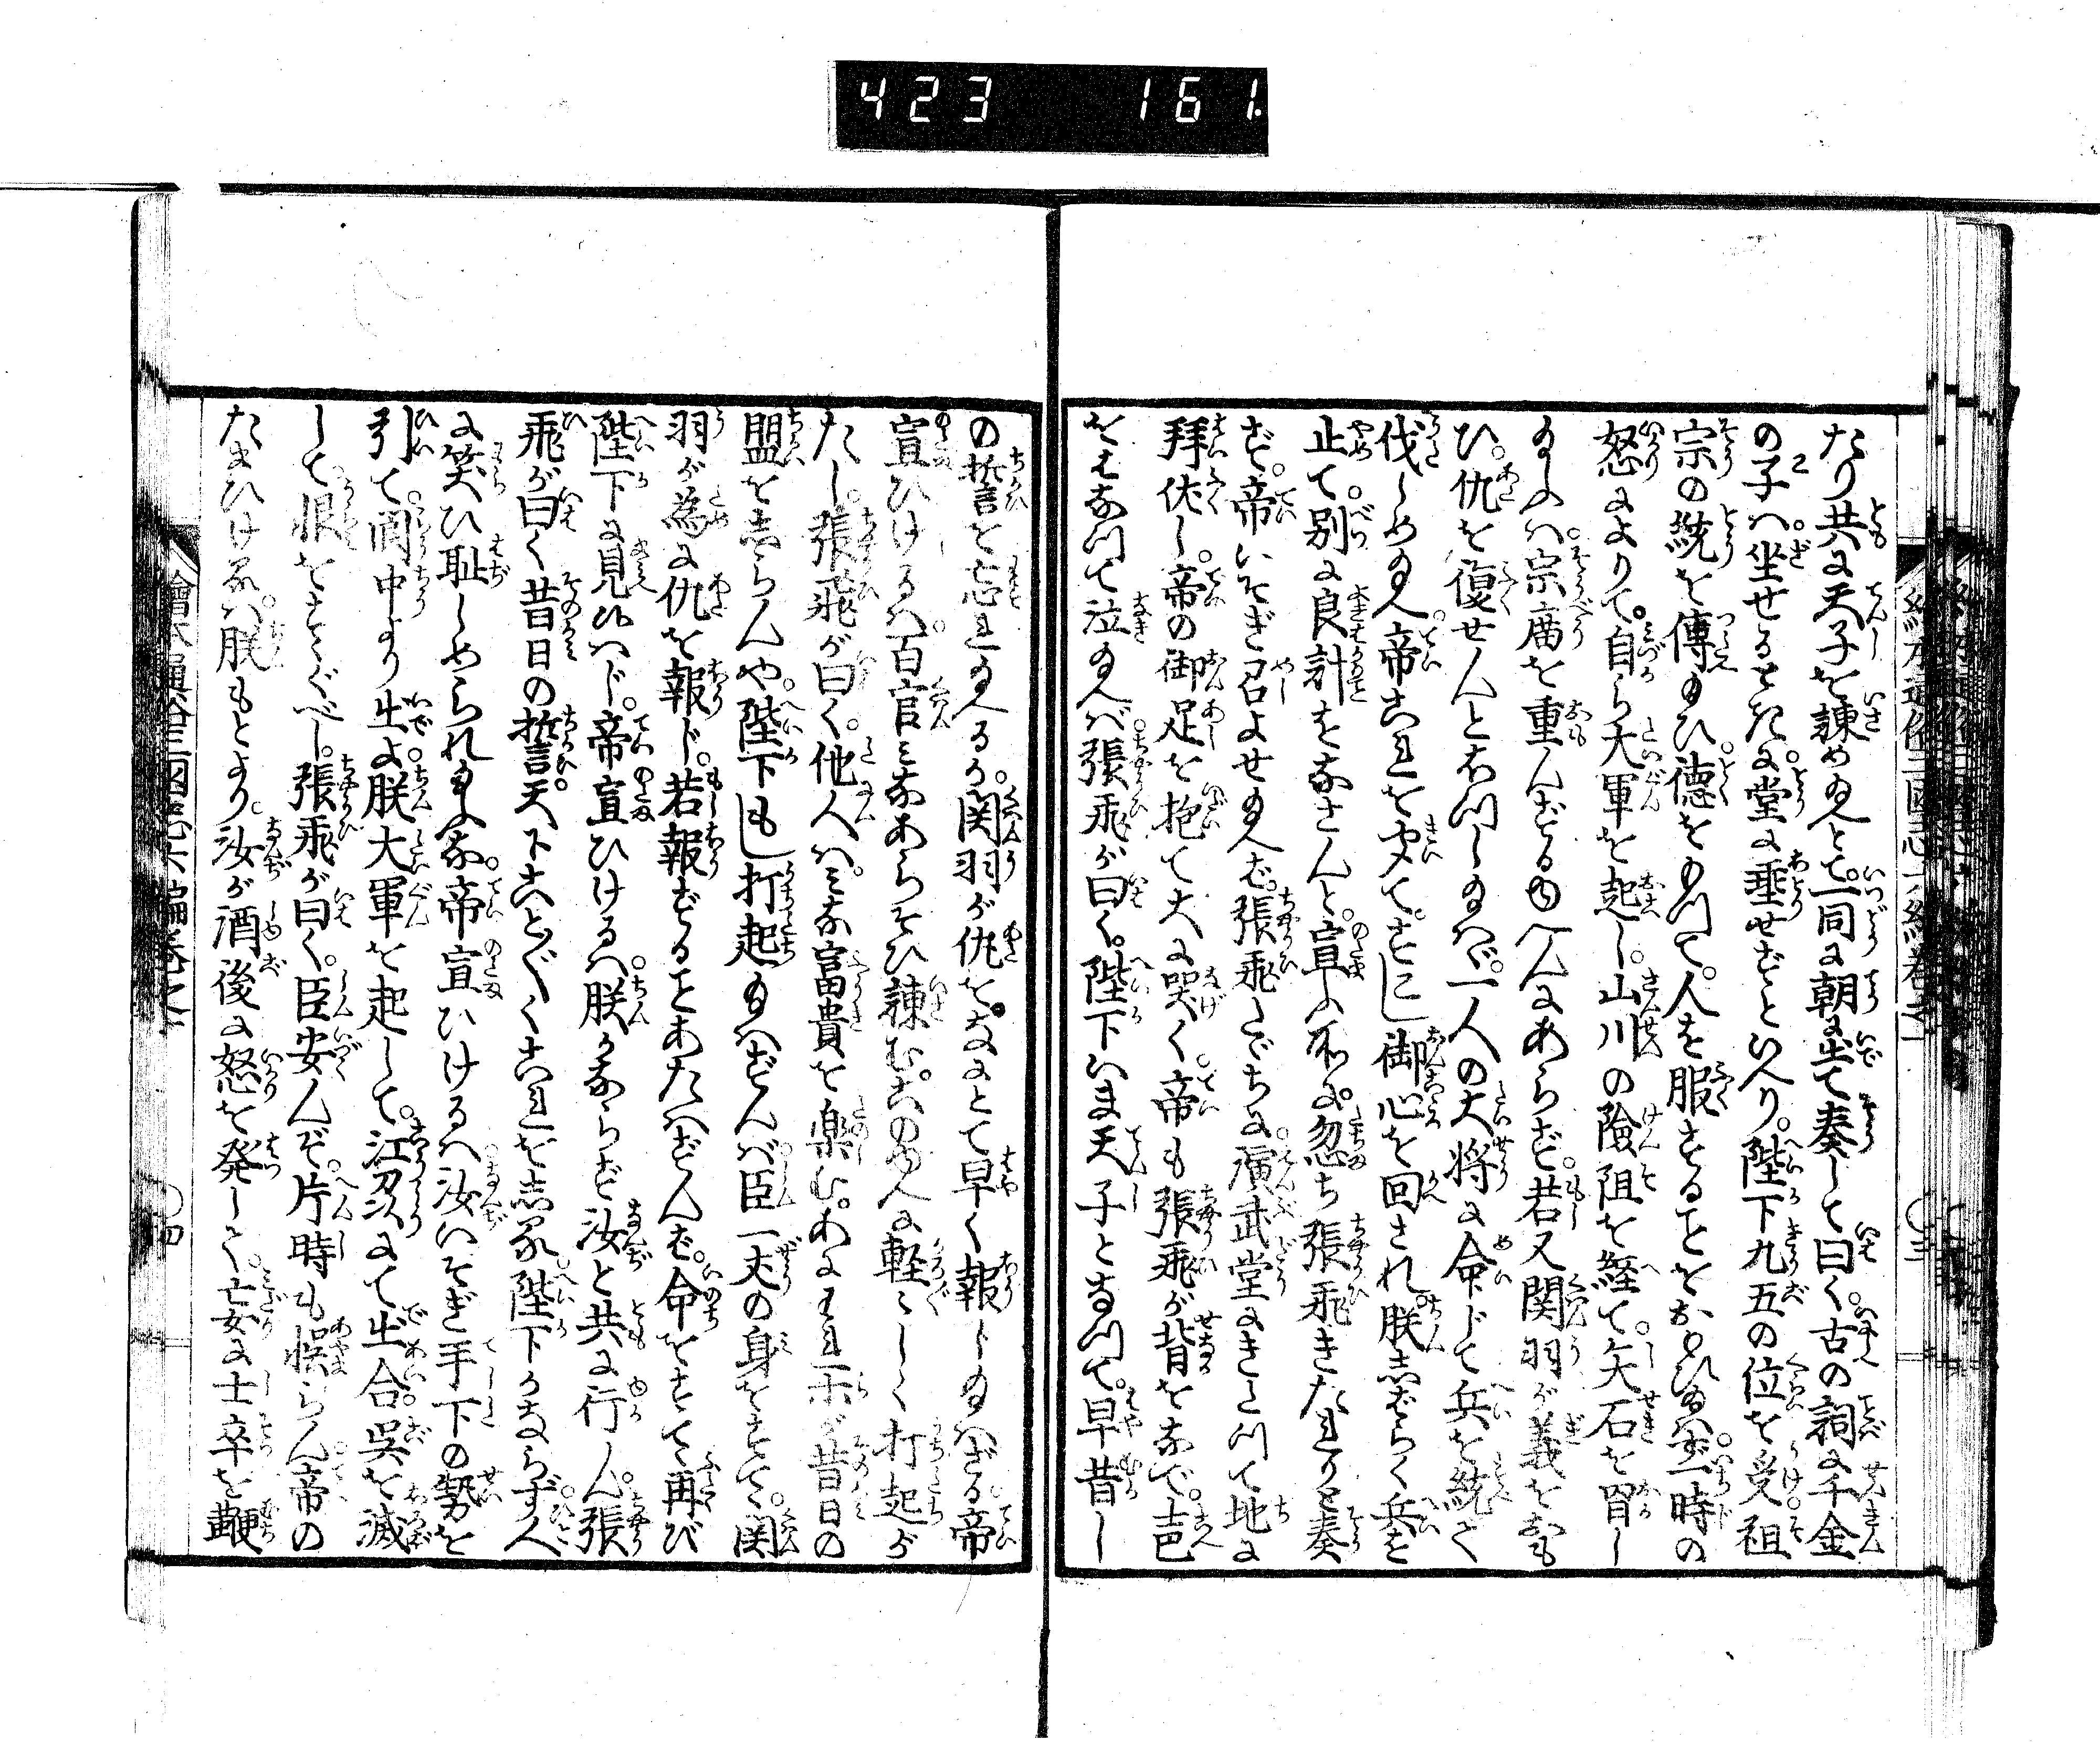 423 161
たり共に天子を諫め玉へとて。一同に朝に出て奏して曰く。古の詞に千金
の子ハ。坐せるときだに。堂に垂せずと火へり。陛下九五の位を受。祖
宗の統を傳玉ひ。徳をもつて。人を服することをおもひ玉ハず。一時の
怒によりて。自ら大軍を起し。山川の險阻を経て。矢石を冒し
玉ふハ。宗庿を重んずるゆへんにあらず。若又関羽が義をおも
ひ。仇を復せんとおつしめさバ。一人の大将に命じて兵を統て
伐しめ玉へ。帝これをきいて。すこし御心を回され。朕しばらく兵を
止て。別に良計をなさんと。宣ふ処に。忽ち張飛きたれりと奏
ず。帝いそぎ召よせ玉へば。張飛たゞちに。演武堂にきたつて地に
拜伏し。帝の御足を抱て大に哭く。帝も張飛が背をなで。声
をはなつて泣玉へバ。張飛が曰く。陛下いま天子となつて。早昔し
の誓を忘れ玉へるか。関羽が仇を。なにとて早く報じ玉ハざる。帝
宣ひけるハ。百官みなあらそひ諫む。このゆへに軽々しく打起が
たし。張飛が曰く。他人ハ。みな富貴を楽む。あにわれ等が昔日の
盟をしらんや。陛下もし打起玉ハずんバ。臣一丈の身をすてゝ。関
羽が為に仇を報じ。若報ずることあたハずんば。命をすてゝ再び
陛下に見候ハじ。帝宣ひけるハ。朕かならず汝と共に行ん。張
飛が曰く昔日の誓。天下ことごとくこれをしる。陛下かならず人
に笑ひ恥しめられ玉ふな。帝宣ひけるハ。汝いそぎ手下の勢を
引て。閬中より出よ。朕大軍を起して。江州にて出合。呉を滅
して。恨をすゝぐべし。張飛が曰く。臣安んぞ。片時も悞らん。帝の
たまひけるハ。朕もとより。汝が酒後に怒を発して。亡妄に士卒を鞭